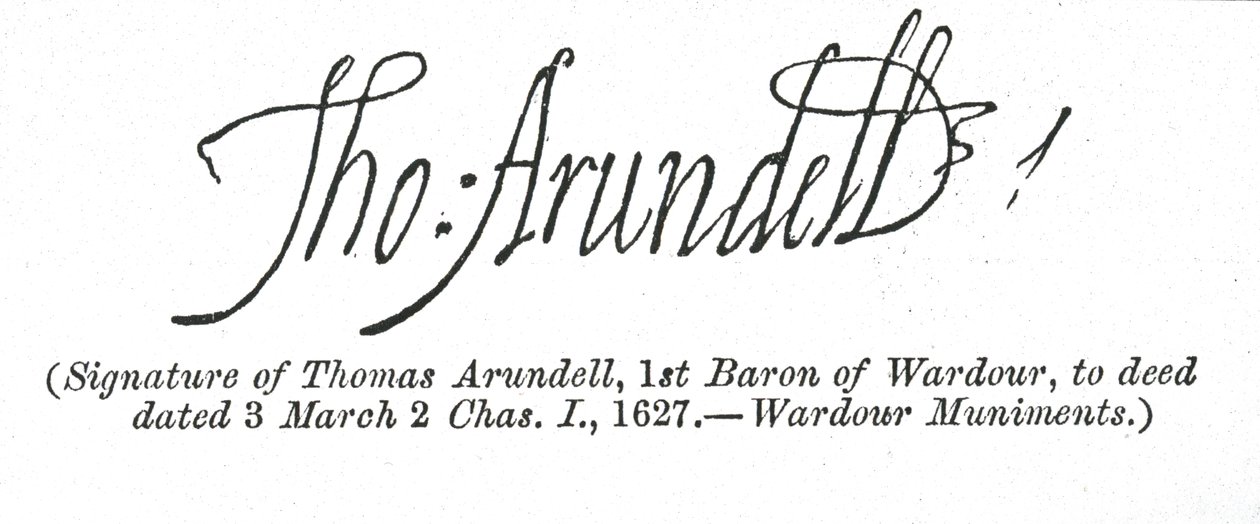 Tho: Arundell
(Signature of Thomas Arundell, 1st Baron of Wardour, to deed
dated 3 March 2 Chas. I., 1627.—Wardour Muniments.)